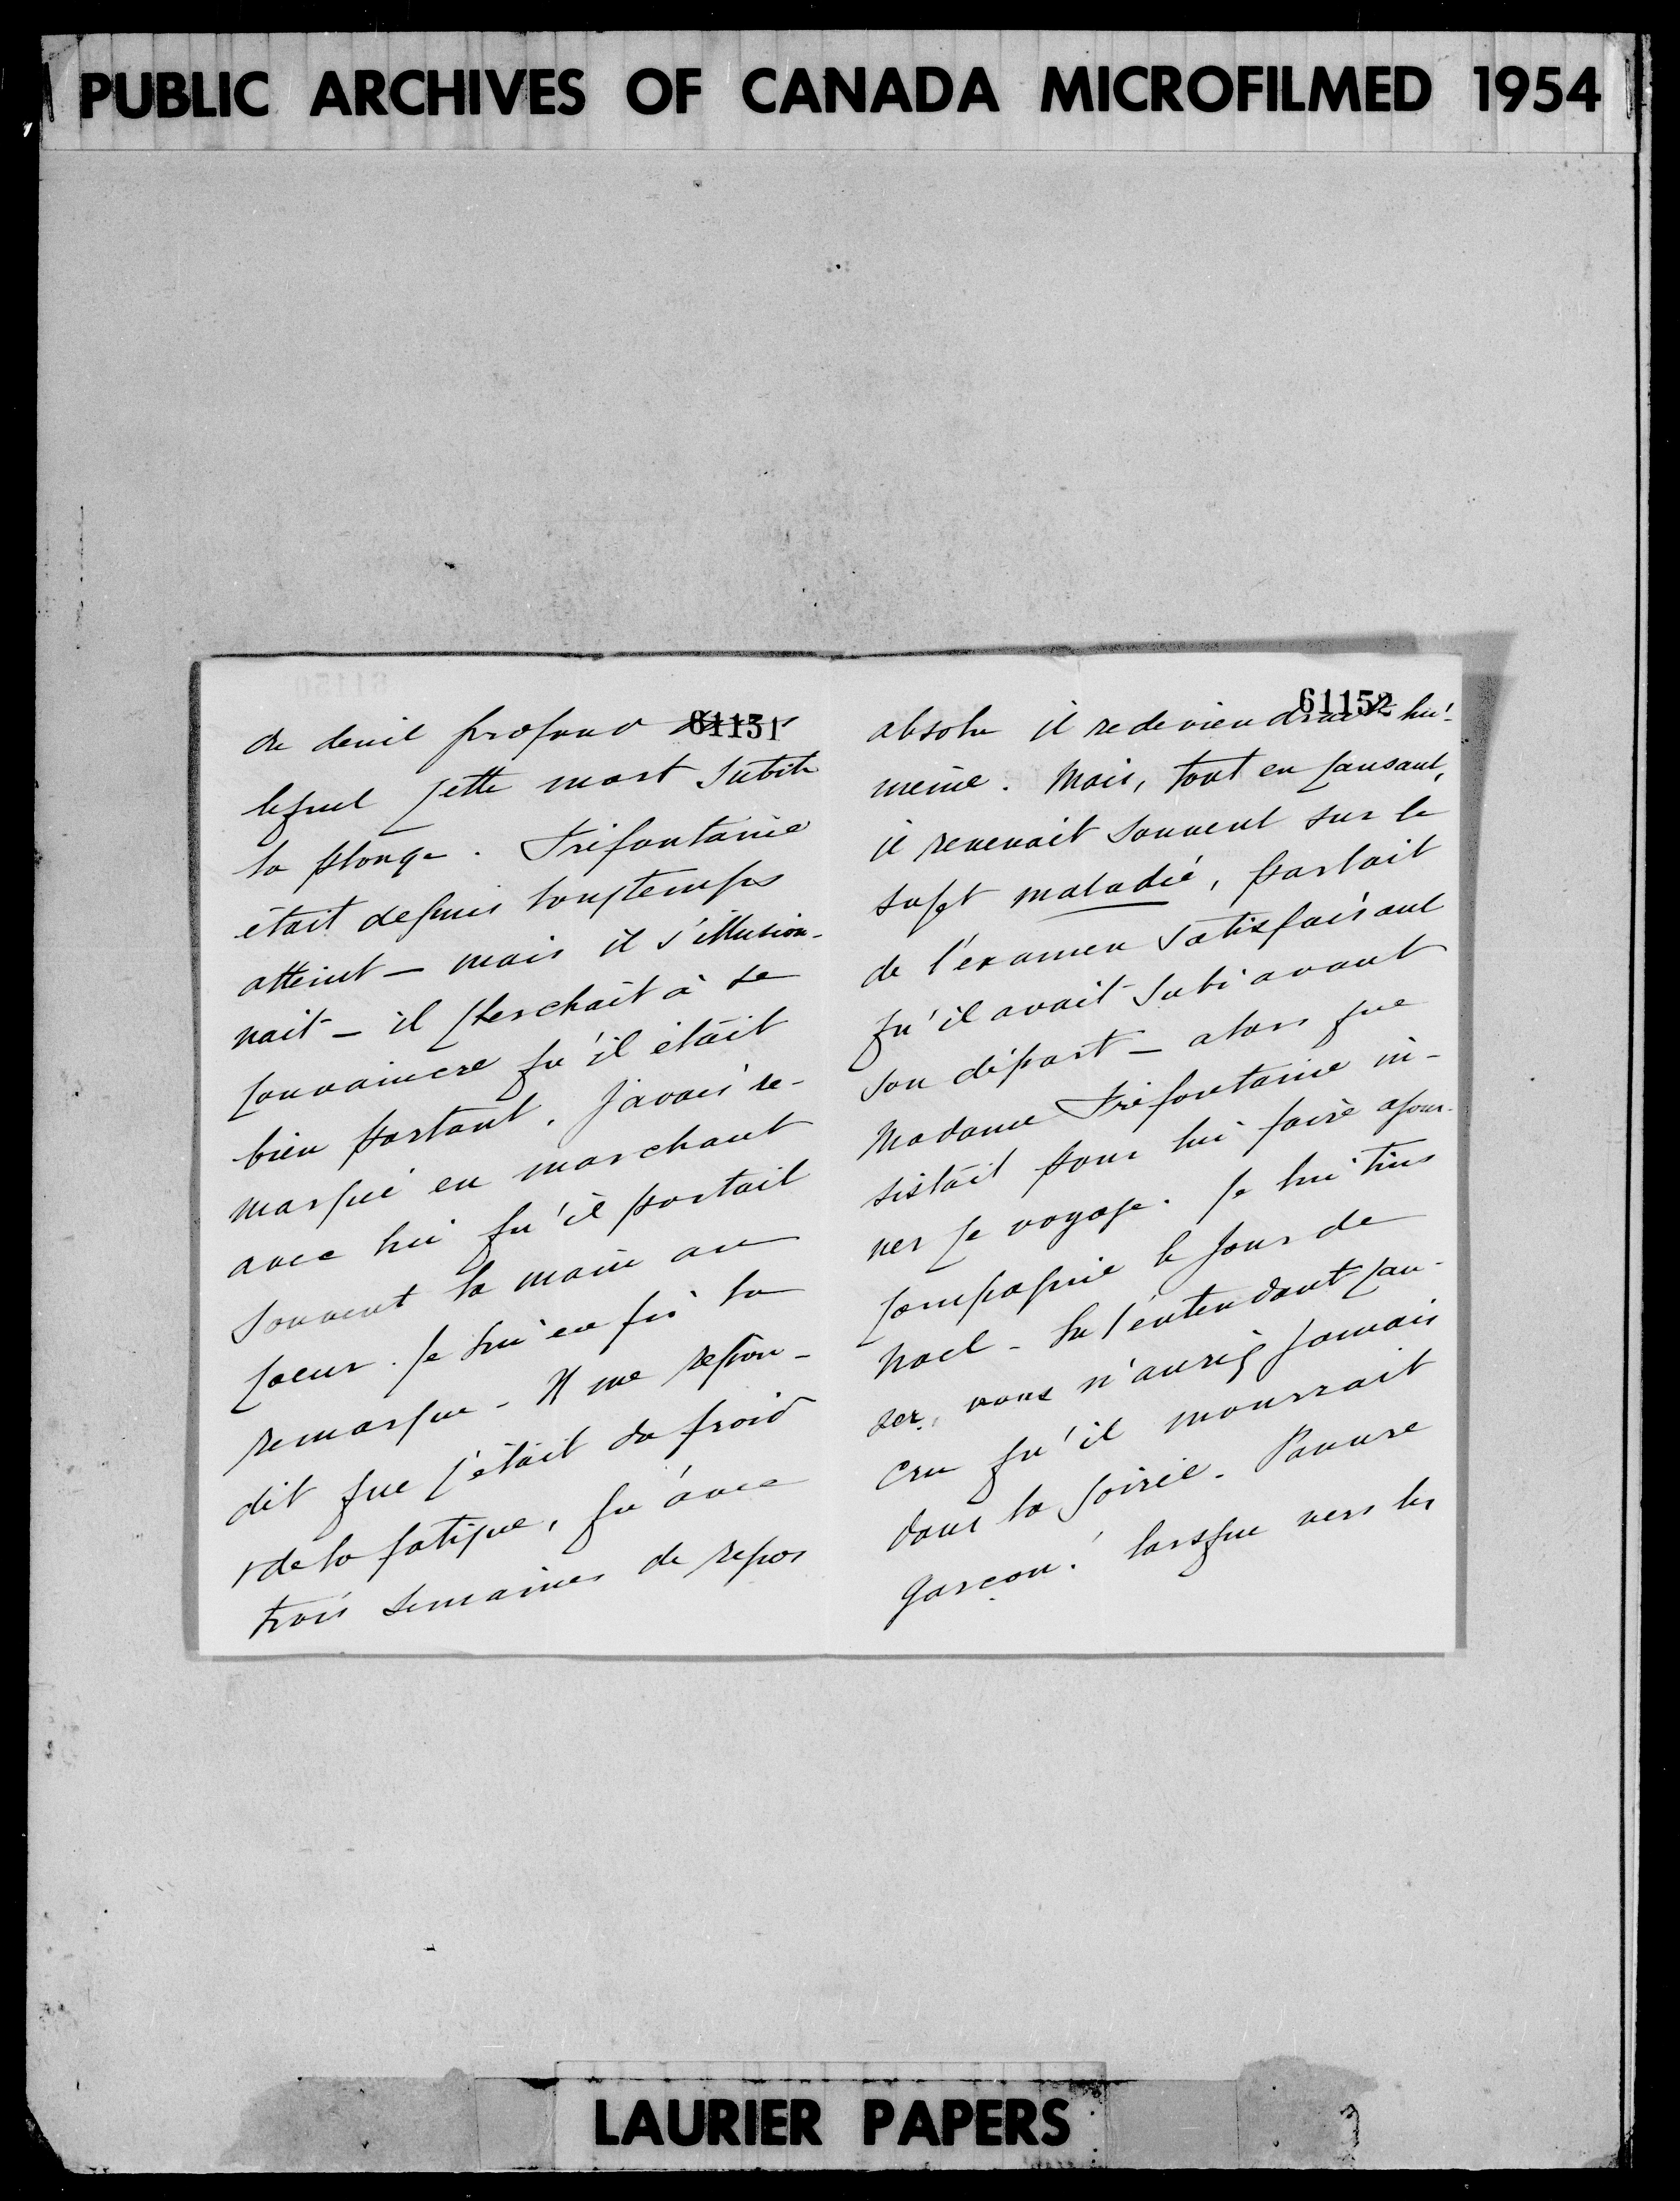 PUBLIC ARCHIVES OF CANADA MICROFILMED 1954
61151
de deuil profond dans
lequel cette mort subite
la plonge. Préfontaine
était depuis longtemps
atteint — mais il s'illusion-
nait — il cherchait à se
convaincre qu'il était
bien portant. J'avais re-
marqué en marchant
avec lui qu'il portait
souvent la main au
coeur. Je lui en fis la
remarque - Il me répon-
dit que c'était du froid
& de la fatigue, qu'avec
trois semaines de repos
61152
absolu il redeviendrait lui-
même. Mais, tout en causant,
il revenait souvent sur le
sujet maladie, parlait
de l'examen satisfaisant
qu'il avait subi avant
son départ — alors que
Madame Préfontaine in-
sistait pour lui faire ajour-
ner ce voyage. Je lui tins
compagnie le jour de
Noel - En l'entendant cau-
ser, vous n'auriez jamais
cru qu'il mourrait
dans la soirée. Pauvre
garçon! lorsque vers les
LAURIER PAPERS